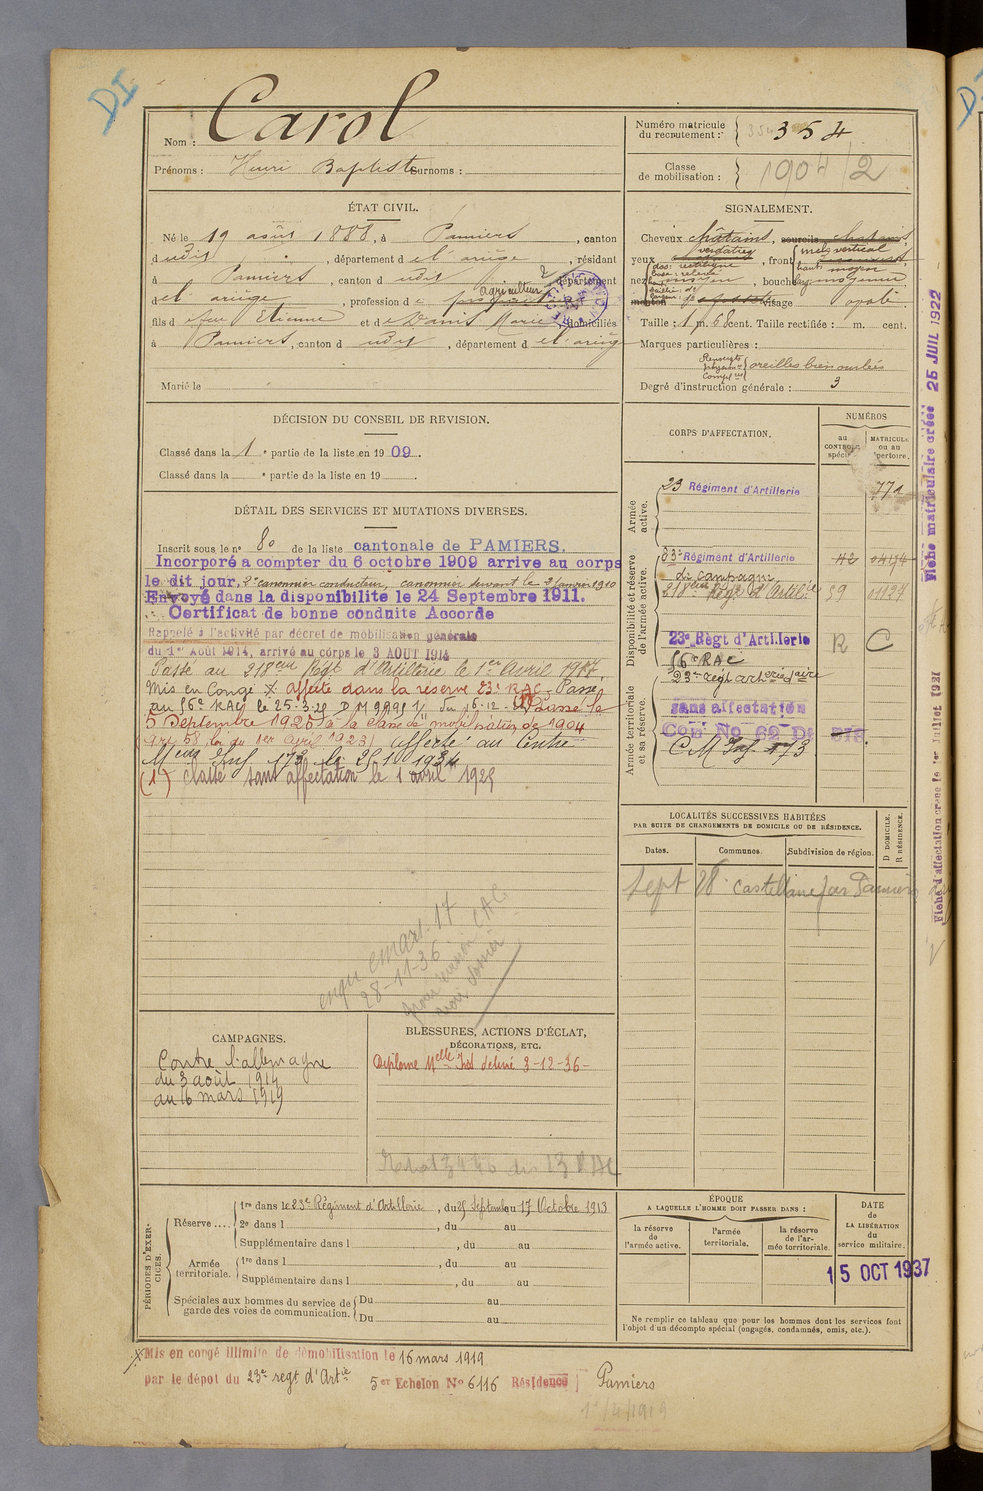 DI
Nom : Carol
Prénoms : Henri Baptiste Surnoms :
Numéro matricule du recrutement : 354
Classe de mobilisation : 1904/2
ÉTAT CIVIL.
Né le 19 août 1888, à Pamiers, canton
d udit, département de l'ariège, résidant
à Pamiers, canton d udit, département
de l'ariège, profession de agriculteur
fils de feu Etienne et de Denis Marie domiciliés
à Pamiers, canton d udit, département de l'ariège
Marié le
SIGNALEMENT.
Cheveux châtains, sourcils châtains,
yeux verdâtres, front vertical
haut: moyen
dos: rectiligne
base: relevée
nez moyen, bouche moyenne
menton visage ovale
Taille : 1 m. 68 cent. Taille rectifiée : m. cent.
Marques particulières :
oreilles bien ourlées
Degré d'instruction générale : 3
DÉCISION DU CONSEIL DE REVISION.
Classé dans la 1e partie de la liste en 1909.
Classé dans la e partie de la liste en 19 .
DÉTAIL DES SERVICES ET MUTATIONS DIVERSES.
Inscrit sous le n° 80 de la liste cantonale de PAMIERS.
Incorporé a compter du 6 octobre 1909 arrive au corps
le dit jour, 2e canonnier conducteur, canonnier servant le 2 janvier 1910
Envoyé dans la disponibilite le 24 Septembre 1911.
Certificat de bonne conduite Accorde
Rappelé à l'activité par décret de mobilisation générale
du 1er Août 1914, arrivé au corps le 3 AOUT 1914
Passé au 218eme Régt d'Artillerie le 1er Avril 1917.
Mis en Congé X affecté dans la réserve 23e RAC. Passé
au 56e RAC le 25-3-25 du 16-12-24 (1) Passé le
5 Septembre 1925 à la classe de mobilisation de 1904
(art 58 loi du 1er Avril 1923) affecté au Centre
Inf 173 le 25 1934
(1) Classé sans affectation le 1 avril 1925
28-11-36
CORPS D'AFFECTATION.
NUMÉROS
au CONTROLE spécial
MATRICULE ou au répertoire.
Armée active.
23 Régiment d'Artillerie 771
Disponibilité et réserve de l'armée active.
Régiment d'Artillerie
de campagne
218eme Régt d'Artillie 59 01129
23e Régt d'Artillerie R C
56e RAC
Armée territoriale et sa réserve.
sans affectation
C M Inf 173
LOCALITÉS SUCCESSIVES HABITÉES
PAR SUITE DE CHANGEMENTS DE DOMICILE OU DE RÉSIDENCE.
Dates.
Communes
Subdivision de région.
D DOMICILE.
R RÉSIDENCE.
Sept 28
Fiche matriculaire créée 25 JUIL 1922
Fiche d'affectation créée le 1er Juillet 1921
CAMPAGNES.
Contre l'allemagne
du 3 août 1914
au 16 mars 1919
BLESSURES, ACTIONS D'ÉCLAT, DÉCORATIONS, ETC.
Diplome Melle Ind délivré 3-12-36
PÉRIODES D'EXERCICES.
Réserve ....
1re dans le 23e Régiment d'Artillerie, du 25 Septemb au 17 Octobre 1913
2e dans l , du au
Supplémentaire dans l , du au
Armée territoriale.
1re dans l , du au
Supplémentaire dans l , du au
Spéciales aux hommes du service de garde des voies de communication.
Du au
Du au
ÉPOQUE
A LAQUELLE L'HOMME DOIT PASSER DANS :
la réserve de l'armée active.
l'armée territoriale.
la réserve de l'armée territoriale.
DATE de LA LIBÉRATION du service militaire.
15 OCT 1937
Ne remplir ce tableau que pour les hommes dont les services font
l'objet d'un décompte spécial (engagés, condamnés, omis, etc.).
X Mis en congé illimité de démobilisation le 16 mars 1919
par le dépôt du 23e regt d'Artie 5er Echelon No 6116 Résidence Pamiers
1er/4/1919